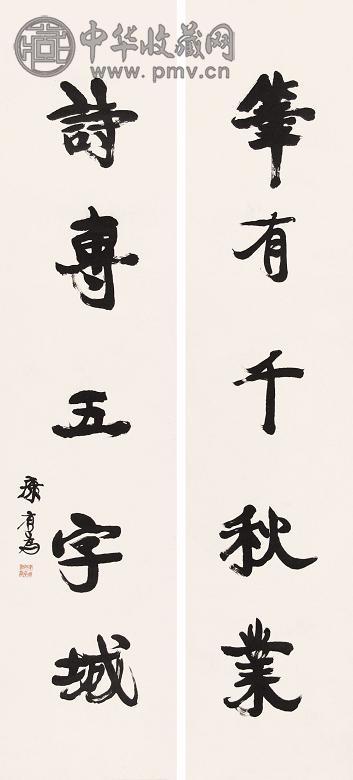 中华收藏网
www.pmv.cn
筆有千秋業
詩專五字城
康有為